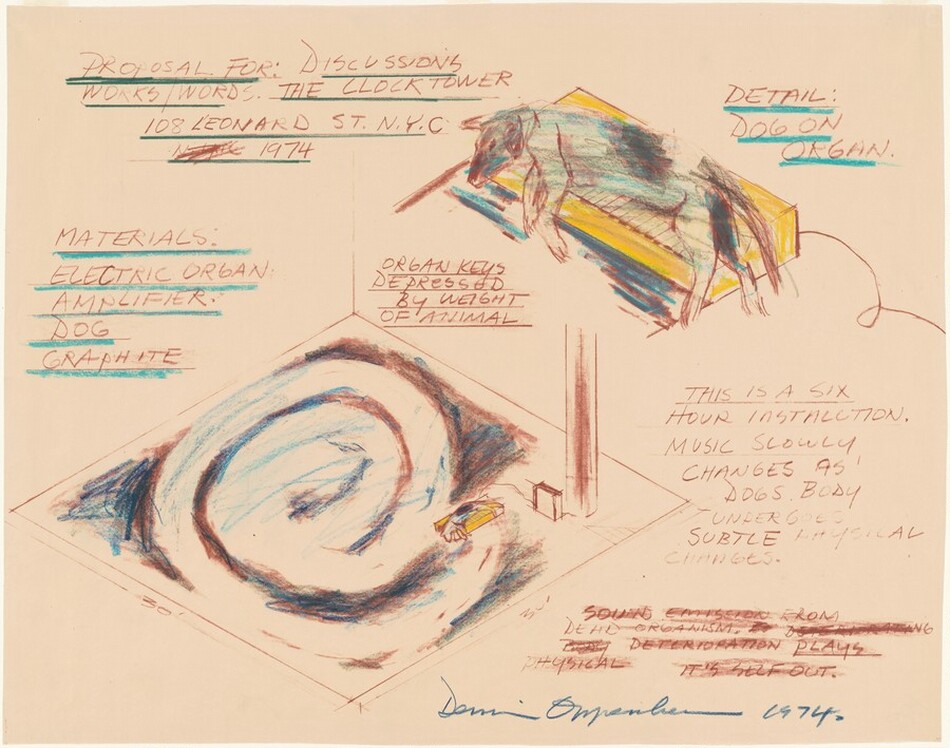 PROPOSAL FOR: DISCUSSIONS
WORKS/WORDS. THE CLOCKTOWER
108 LEONARD ST. N.Y.C.
1974
DETAIL:
DOG ON
ORGAN.
MATERIALS:
ELECTRIC ORGAN.
AMPLIFIER.
DOG
GRAPHITE
ORGAN KEYS
DEPRESSED
BY WEIGHT
OF ANIMAL
THIS IS A SIX
HOUR INSTALLCTION.
MUSIC SLOWLY
CHANGES AS
DOGS. BODY
UNDERGOES
SUBTLE PHYSICAL
CHANGES.
30'
SOUND EMISSION FROM
DEAD ORGANISM.
DETERIORATION PLAYS
PHYSICAL IT'S SELF OUT.
Dennis Oppenheim 1974.